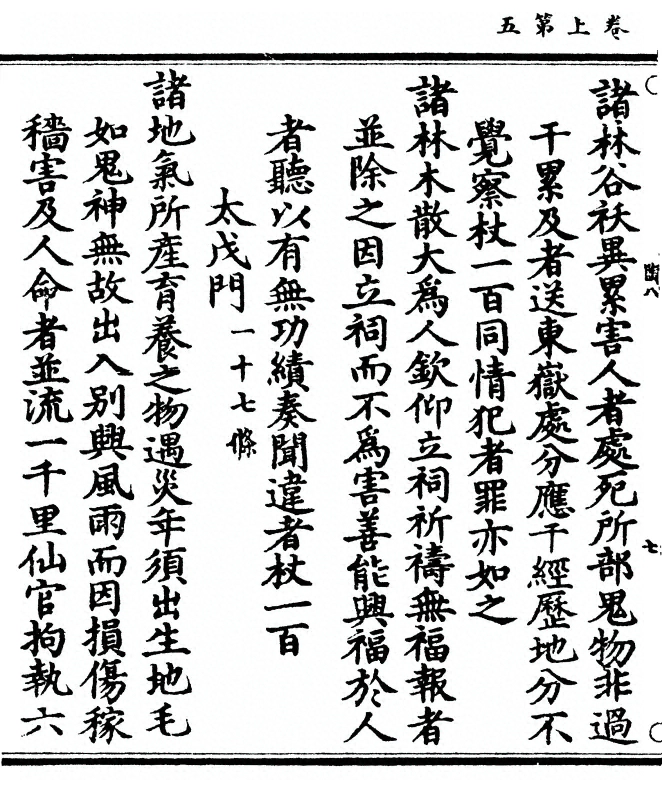 卷上第五
陶八
七
諸林谷祅異累害人者處死所部鬼物非過
干累及者送東嶽處分應干經歷地分不
覺察杖一百同情犯者罪亦如之
諸林木散大爲人欽仰立祠祈禱無福報者
並除之因立祠而不爲害善能興福於人
者聽以有無功績奏聞違者杖一百
太戊門一十七條
諸地氣所産育養之物遇災年須出生地毛
如鬼神無故出入别興風雨而因損傷稼
穡害及人命者並流一千里仙官拘執六